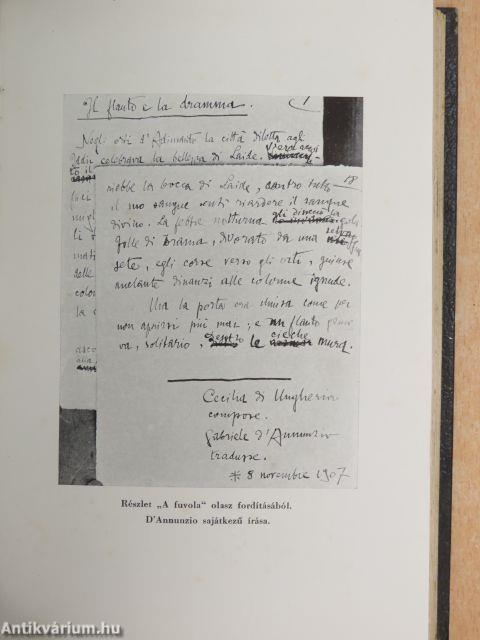 Il flauto e la dramma.
1
Negli orti d'Adimanto la città diletta agli
Iddii celebrava la bellezza di Laide.
18
rebbe la bocca di Laide, contro tutto
il suo sangue sentì riardere il sangue
divino. La febre notturna gli divenne
folle di brama, divorato da una
sete, egli corse verso gli orti, giunse
anelante dinanzi alle colonne ignude.
Ma la porta era chiusa come per
non aprirsi più mai; e un flauto geme
va, solitario, dentro le cieche mura.
Cecilia di Ungheria
compose.
Gabriele d'Annunzio
tradusse.
* 8 novembre 1907
Részlet „A fuvola“ olasz fordításából.
D'Annunzio sajátkezű írása.
Antikvárium.hu